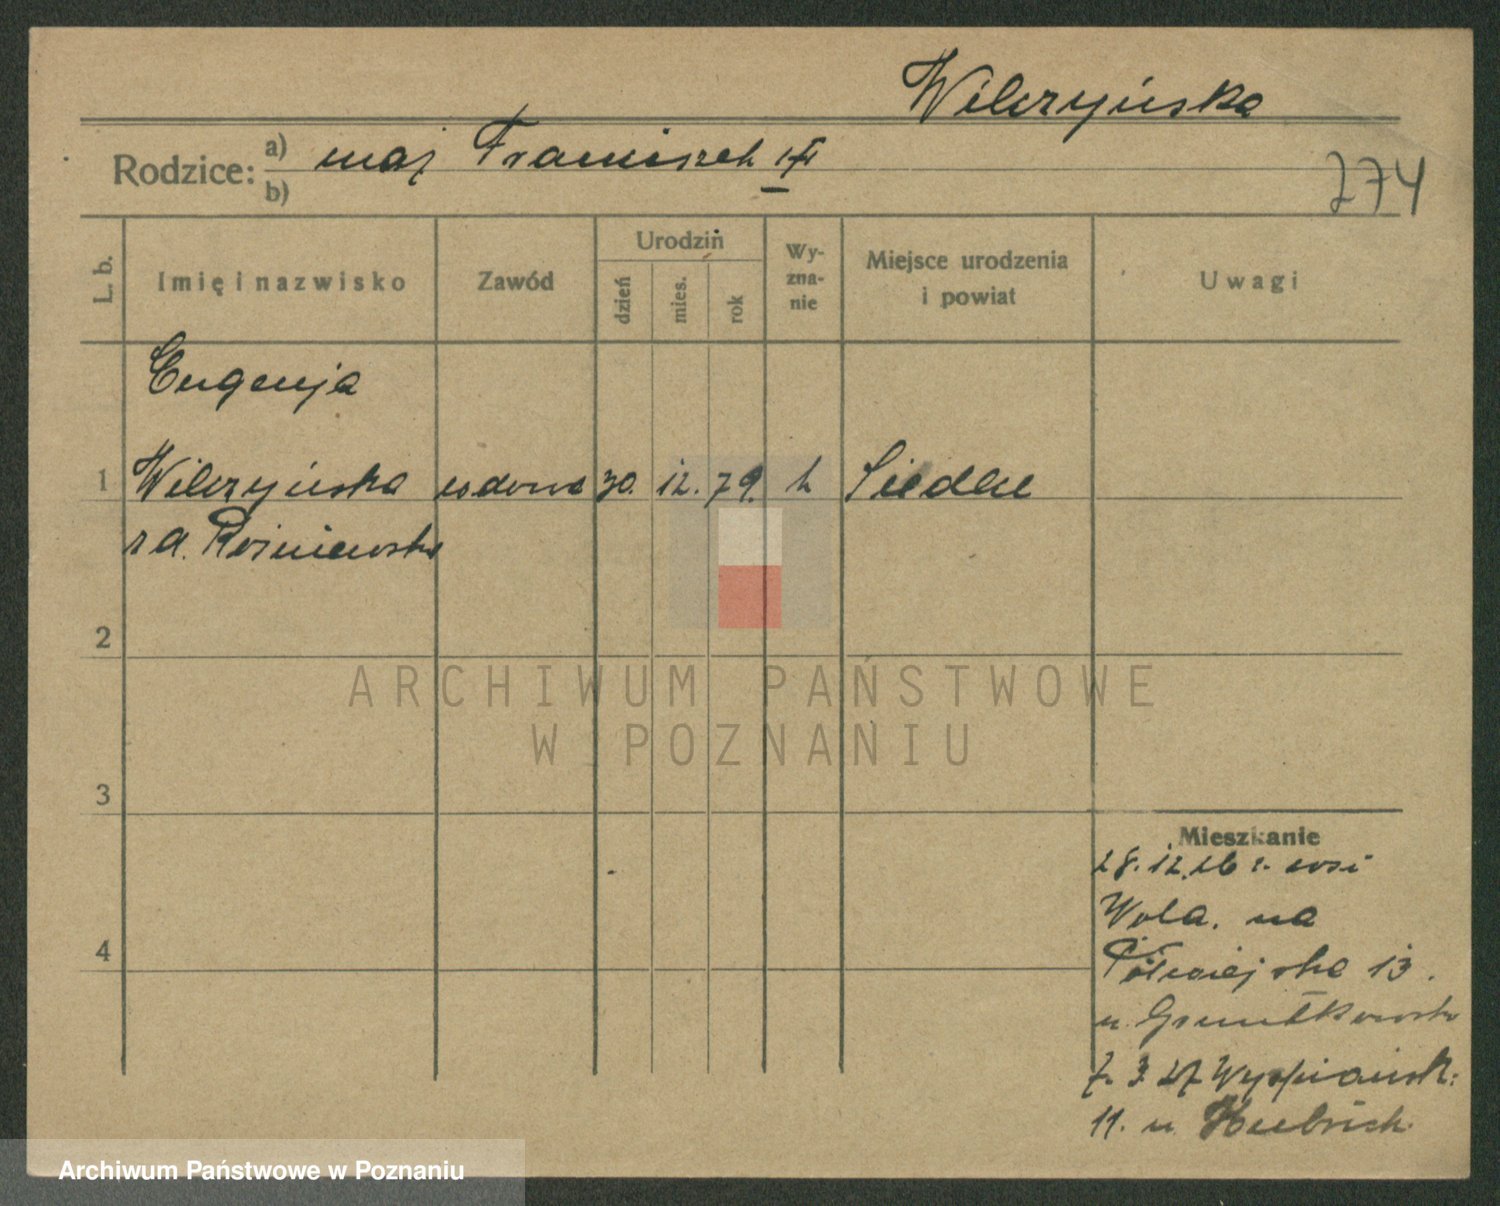 Wilczyńska
Rodzice: a) mąż Franciszek
b)
274
L. b.
Imię i nazwisko
Zawód
Urodzin
dzień
mies.
rok
Wy-
zna-
nie
Miejsce urodzenia
i powiat
Uwagi
Eugenja
1 Wilczyńska wdowa 30. 12. 79. k Siedlce
z d.
2
ARCHIWUM PAŃSTWOWE
W POZNANIU
3
Mieszkanie
28.12.26 r. wsi
Wola. na
4
Półwiejska 13.
u.
7. 3. 27 Wyspiańsk:
11. u
Archiwum Państwowe w Poznaniu